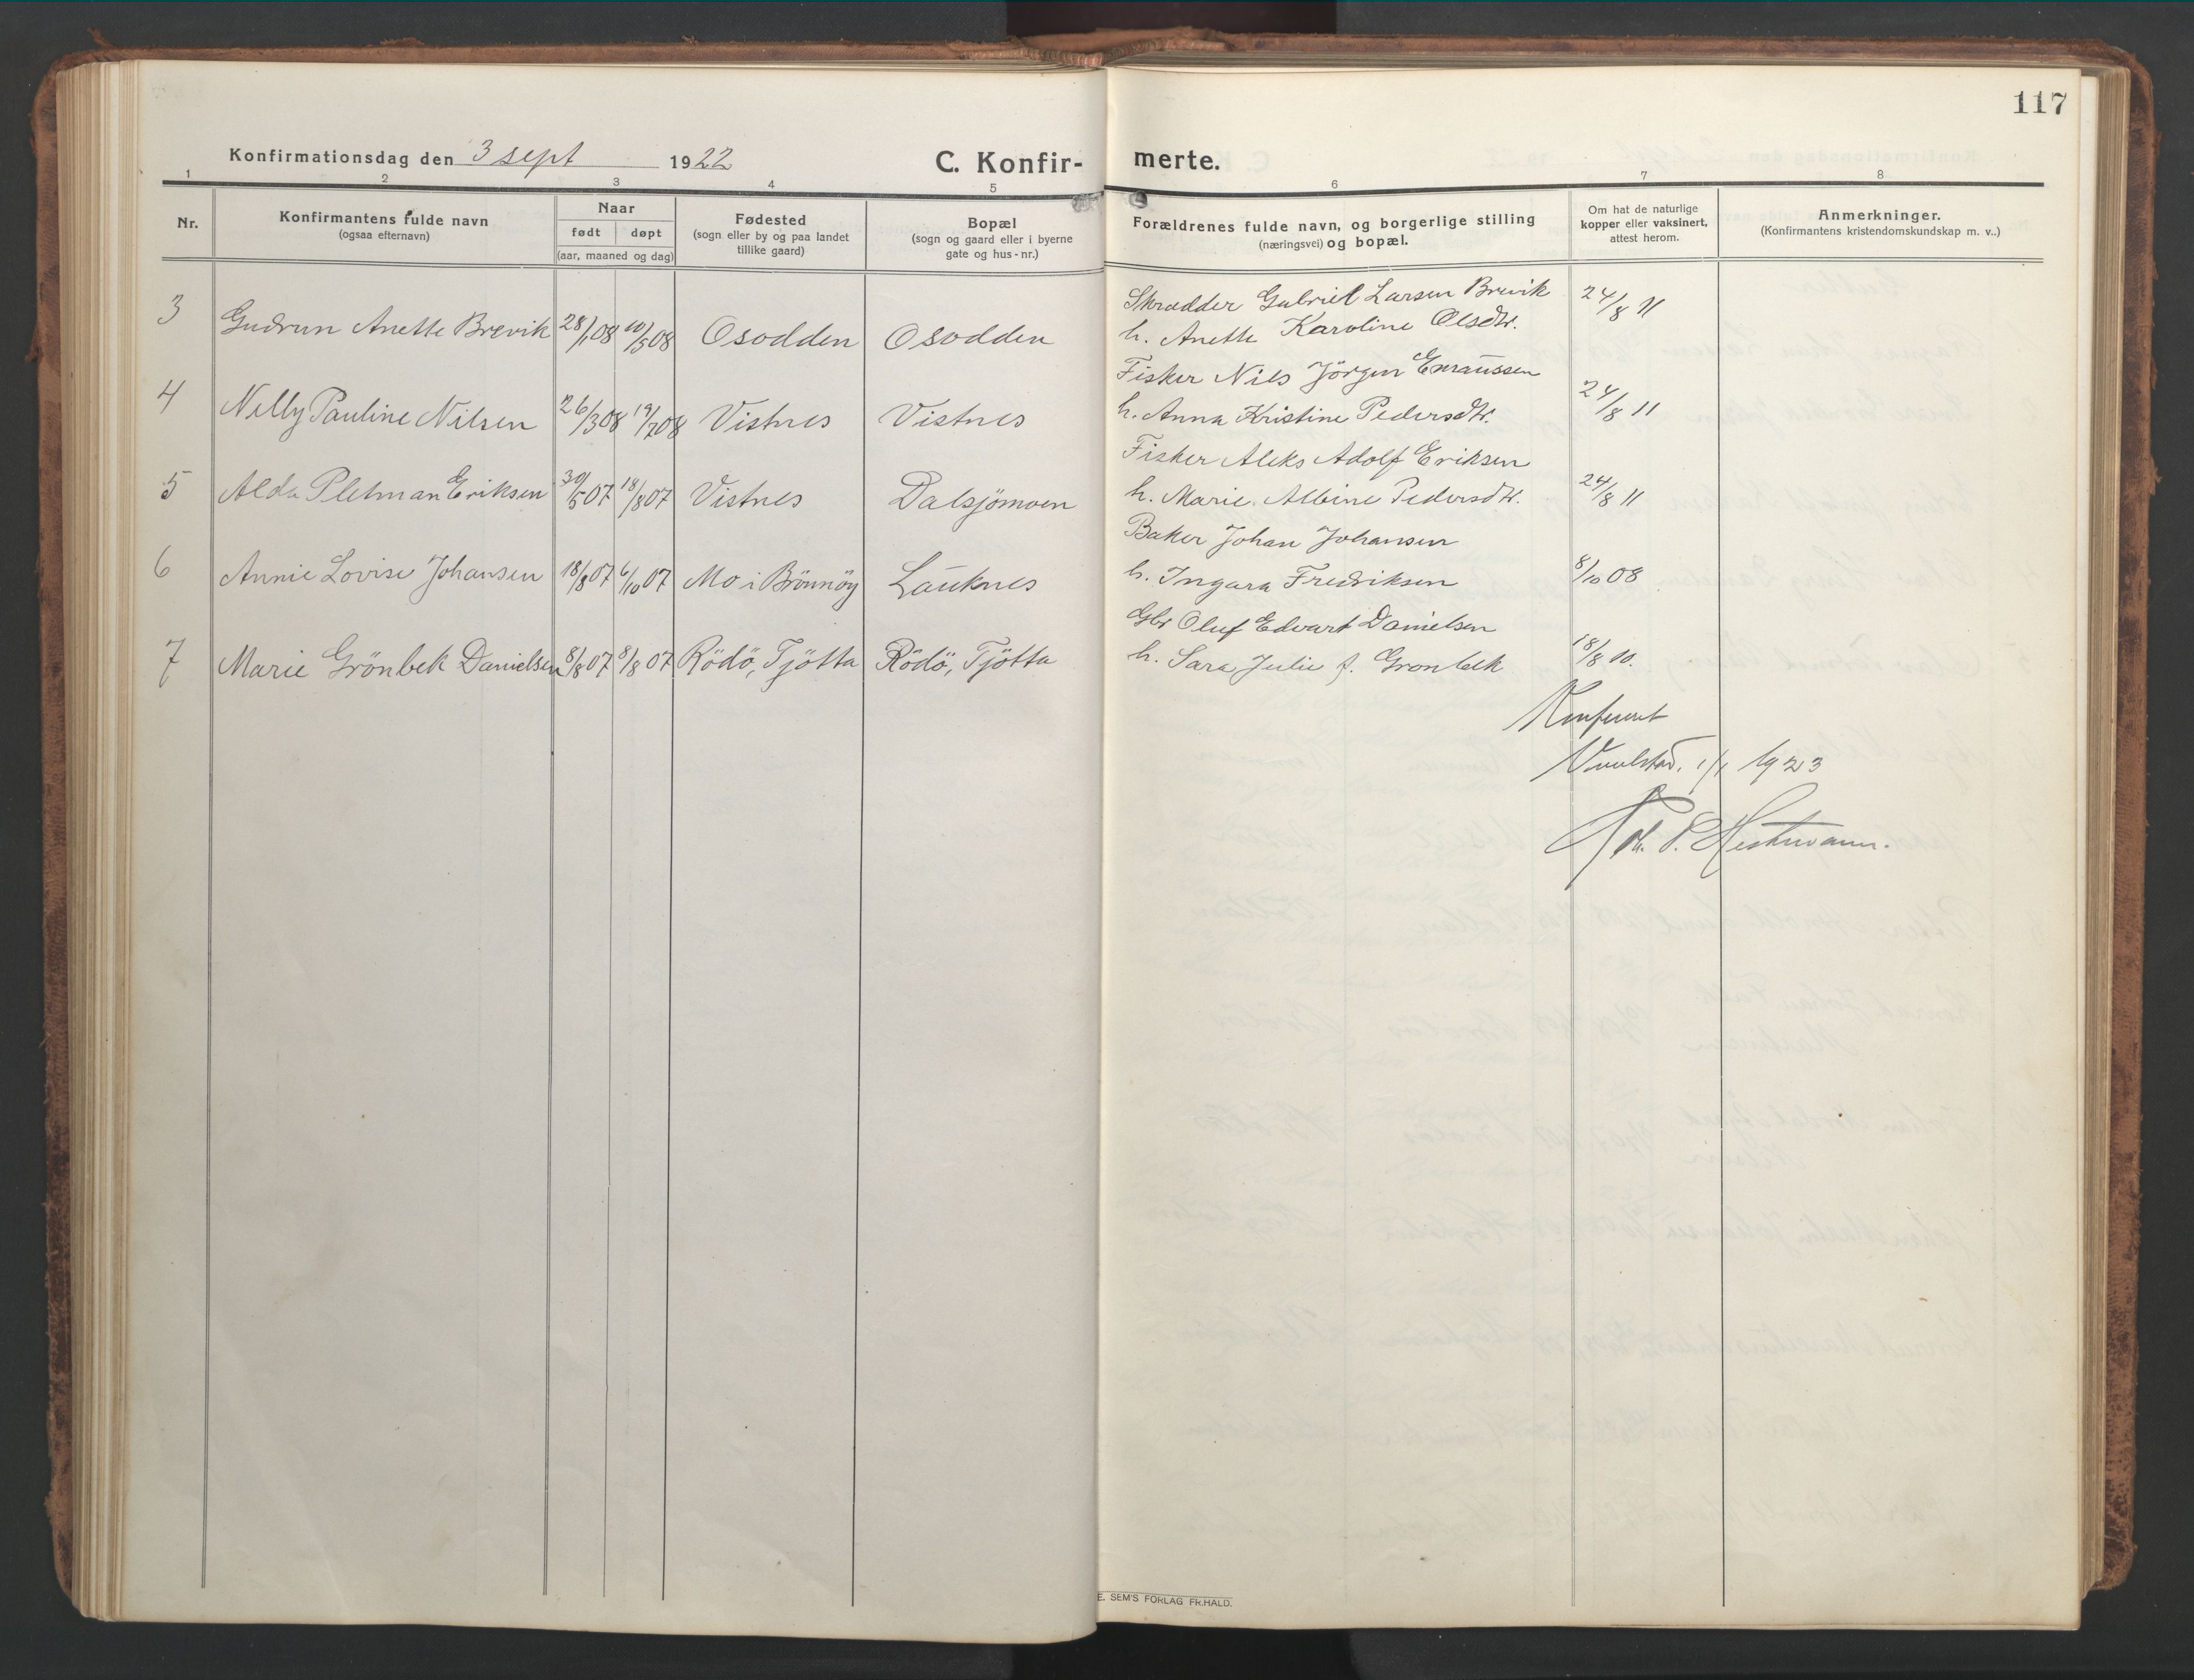 117
Konfirmationsdag den 3 sept 1922
C. Konfir- merte.
1 2 3 4 5 6 7 8
Nr.
Konfirmantens fulde navn
(ogsaa efternavn)
Naar
født døpt
(aar, maaned og dag)
Fødested
(sogn eller by og paa landet
tillike gaard)
Bopæl
(sogn og gaard eller i byerne
gate og hus-nr.)
Forældrenes fulde navn, og borgerlige stilling
(næringsvei) og bopæl.
Om hat de naturlige
kopper eller vaksinert,
attest herom.
Anmerkninger.
(Konfirmantens kristendomskundskap m. v..)
3 Gudrun Anette Brevik 28/1 08 10/5 08 Osodden Osodden Skrædder Gabriel Larsen Brevik 24/8 11
h. Anette Karoline Olsdtr.
4 Nelly Pauline Nilsen 26/3 08 19/7 08 Vistnes Vistnes Fisker Nils Jörgen Emaussen 24/8 11
h. Anna Kristine Pedersdtr.
5 Alda Pletman Eriksen 30/5 07 18/8 07 Vistnes Dalsjömoen Fisker Aleks Adolf Eriksen 24/8 11
h. Marie Albine Pedersdtr.
6 Annie Lovise Johansen 18/8 07 6/10 07 Mo i Brönnöy Lauknes Baker Johan Johansen 8/10 08
h. Ingara Fredriksen
7 Marie Grönbek Danielsen 8/8 07 8/8 07 Rödö, Tjötta Rödö, Tjötta Gbr Oluf Edvart Danielsen 18/8 10.
h. Sara Julie f. Gronbek
Konferert
1/1 1923
P. Hestmann.
E. SEM'S FORLAG FR.HALD.